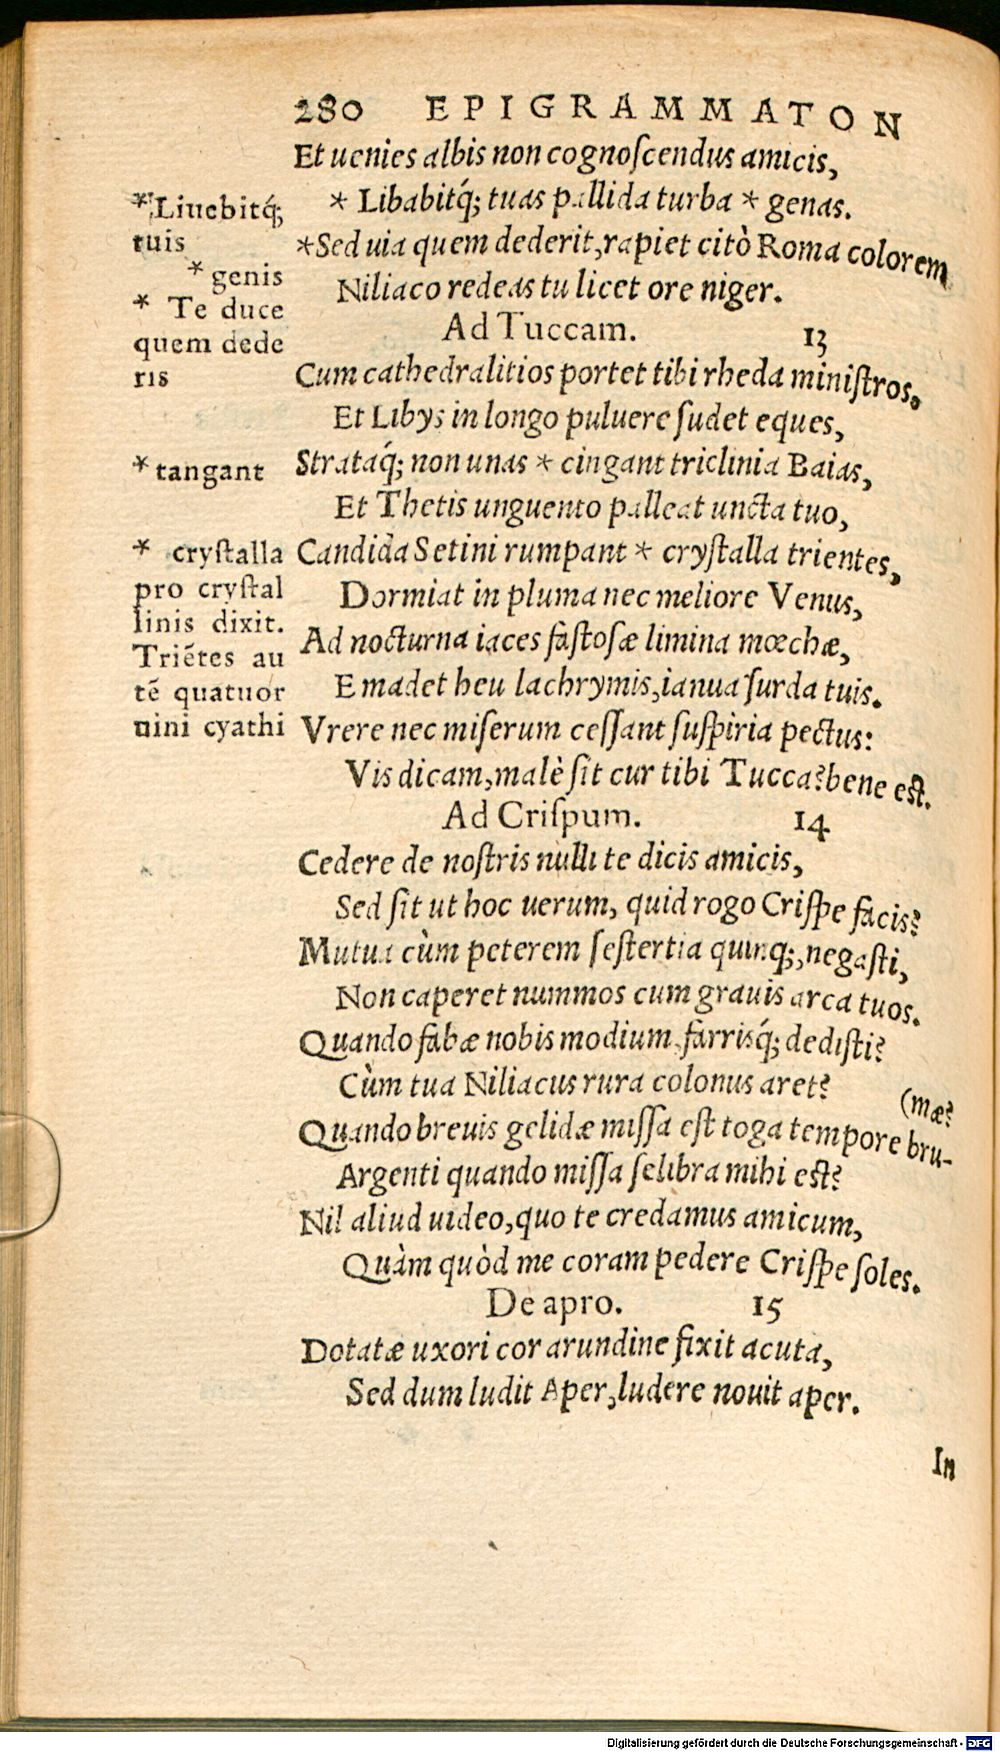 280 EPIGRAMMATON
Et uenies albis non cognoſcendus amicis,
* Libabitq́; tuas pallida turba * genas.
*Sed uia quem dederit, rapiet citò Roma colorem
Niliaco redeas tu licet ore niger.
Ad Tuccam. 13
Cum cathedralitios portet tibi rheda miniſtros,
Et Libys in longo puluere ſudet eques,
Strataq́; non unas * cingant triclinia Baias,
Et Thetis unguento palleat uncta tuo,
Candida Setini rumpant * cryſtalla trientes,
Dormiat in pluma nec meliore Venus,
Ad nocturna iaces faſtoſæ limina mœchæ,
Emadet heu lachrymis, ianua ſurda tuis.
Vrere nec miſerum ceſſant ſuſpiria pectus:
Vis dicam, malè ſit cur tibi Tucca? bene eſt.
Ad Criſpum. 14
Cedere de noſtris nulli te dicis amicis,
Sed ſit ut hoc uerum, quid rogo Criſpe facis?
Mutua cùm peterem ſeſtertia quinq;, negaſti,
Non caperet nummos cum grauis arca tuos.
Quando fabæ nobis modium, farrisq́; dediſti?
Cùm tua Niliacus rura colonus aret?
Quando breuis gelidæ miſſa eſt toga tempore bru-
(mæ?
Argenti quando miſſa ſelibra mihi eſt?
Nil aliud uideo, quo te credamus amicum,
Quàm quòd me coram pedere Criſpe ſoles.
De apro. 15
Dotatæ uxori cor arundine fixit acuta,
Sed dum ludit Aper, ludere nouit aper.
In
*Liuebitq́;
tuis
* genis
* Te duce
quem dede
ris
* tangant
* cryſtalla
pro cryſtal
linis dixit.
Triẽtes au
tẽ quatuor
nini cyathi
Digitalisierung gefördert durch die Deutsche Forschungsgemeinschaft - DFG